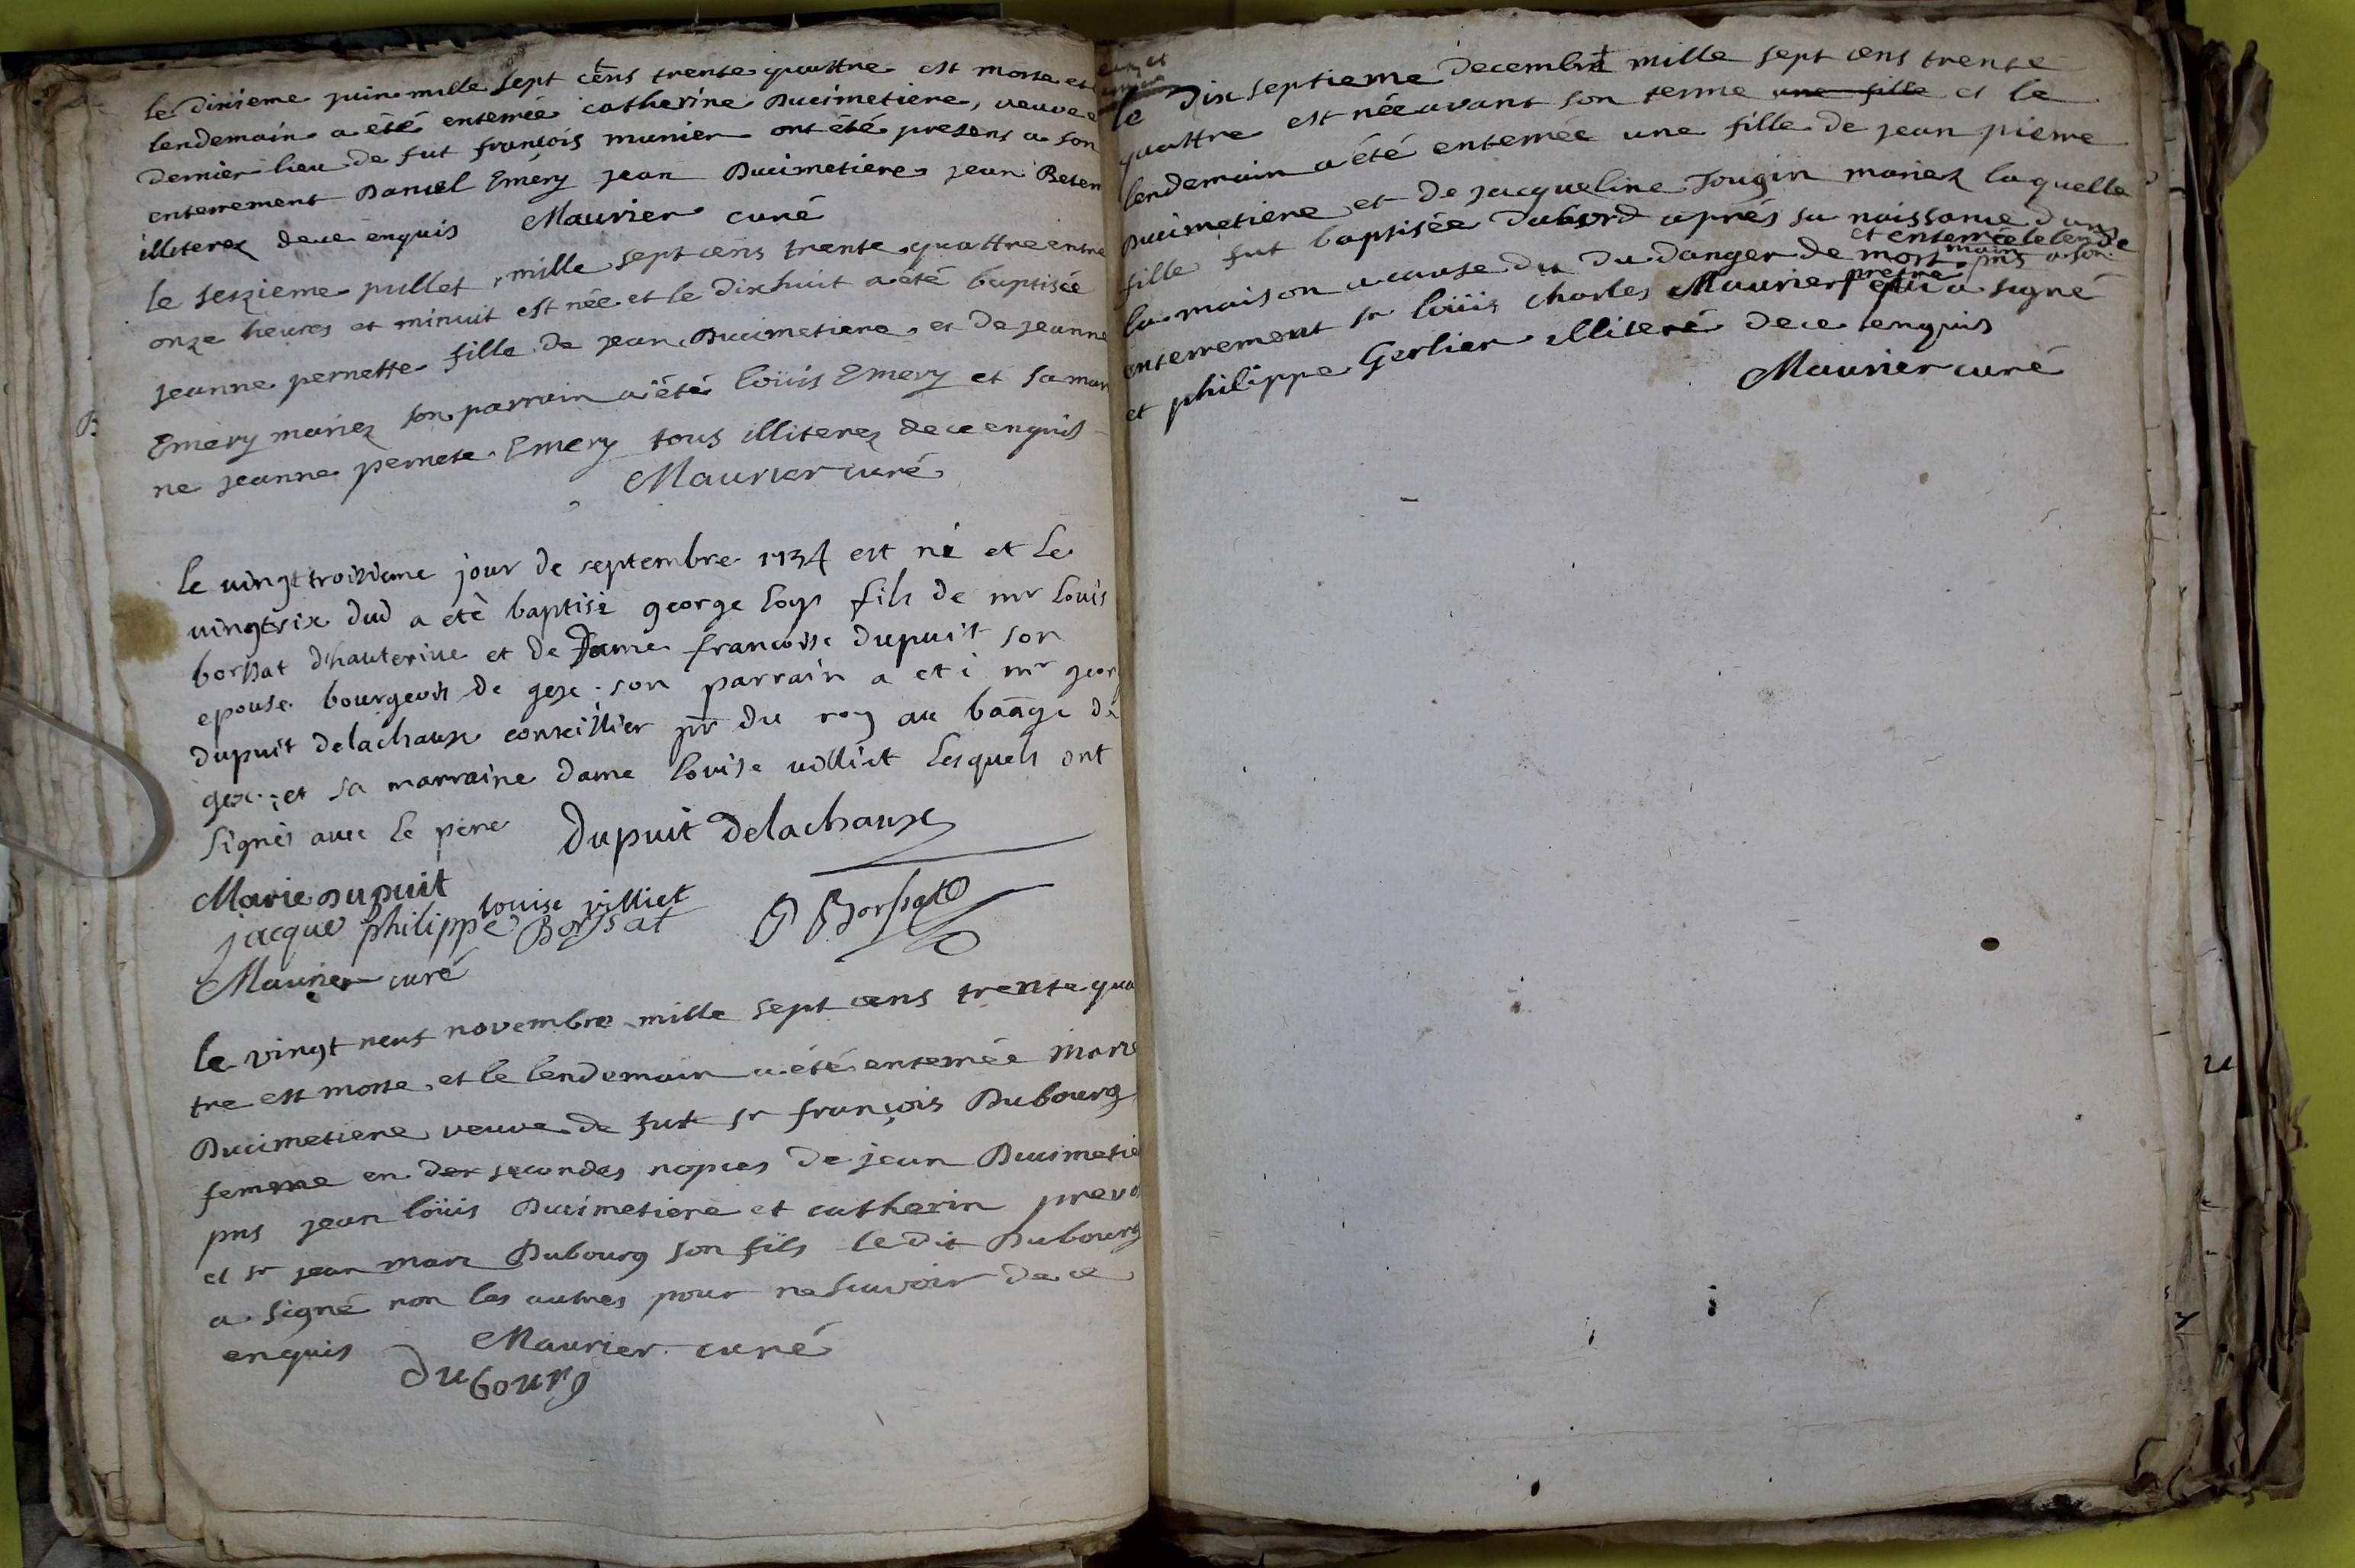 le dixieme juin mille sept cens trente quattre est morte et
lendemain a été enterrée catherine Ducimetiere, veuve e
dernier lieu de fut françois munier ont été presens a son
enterrement Daniel Emery jean Ducimetiere jean Beten
illiterez de ce enquis Maurier curé
le seizieme juillet mille sept cens trente quattre entre
onze heures et minuit est née et le dixhuit a été baptisée
jeanne pernette fille de jean Ducimetiere et de jeanne
Emery mariez son parrain a été loüis Emery et sa mar
ne jeanne pernete Emery tous illiterez de ce enquis
Maurier curé
le vingt troisieme jour de septembre 1734 est né et le
vingtsix dud a eté baptisé george loys fils de mr louis
borssat d'hauterive et de Dame francoise dupuit son
epouse bourgeois de gex; son parrain a eté mr geor
dupuit delachaux conseillier pr du roy au baãge de
gex; et sa marraine dame louise villiet lesquels ont
signés avec le pere dupuit delachaux
Marie dupuit
louise villiet
jacque philippe Borssat Borssat
Maurier curé
le vingt neuf novembre mille sept cens trente qua
tre est morte et le lendemain a été enterrée marie
Ducimetiere veuve de fut sr françois Dubourg
femme en der secondes nopces de jean Ducimetie
pns jean loüis Ducimetiere et catherin prevo
et sr jean marc Dubourg son fils ledit Dubourg
a signé non les autres pour ne scavoir de ce
enquis Maurier curé
dubourg
le dix septieme decembre mille sept cens trente
quattre est née avant son terme une fille et le
lendemain a été enterrée une fille de jean pierre
Ducimetiere et de jacqueline Tougin mariez laquelle
fille fut baptisée dabord aprés sa naissance dans
et enterrée le lende
la maison a cause du du danger de mort main pns a son
enterrement sr loüis charles Maurier prestre qui a signé
et philippe Gerlier illiteré de ce enquis
Maurier curé